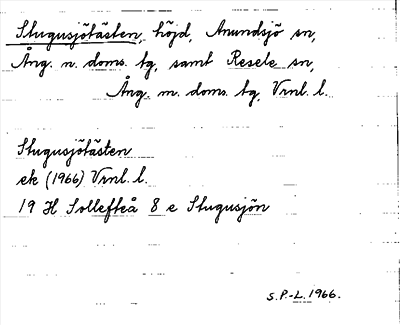 Stugusjötåsten, höjd, Anundsjö sn,
Ång. n. doms. tg, samt Resele sn,
Ång. m. doms. tg, Vrnl. l.
Stugusjötåsten
ek (1966) Vrnl. l.
19 H Sollefteå 8 e Stugusjön
S.P.-L. 1966.